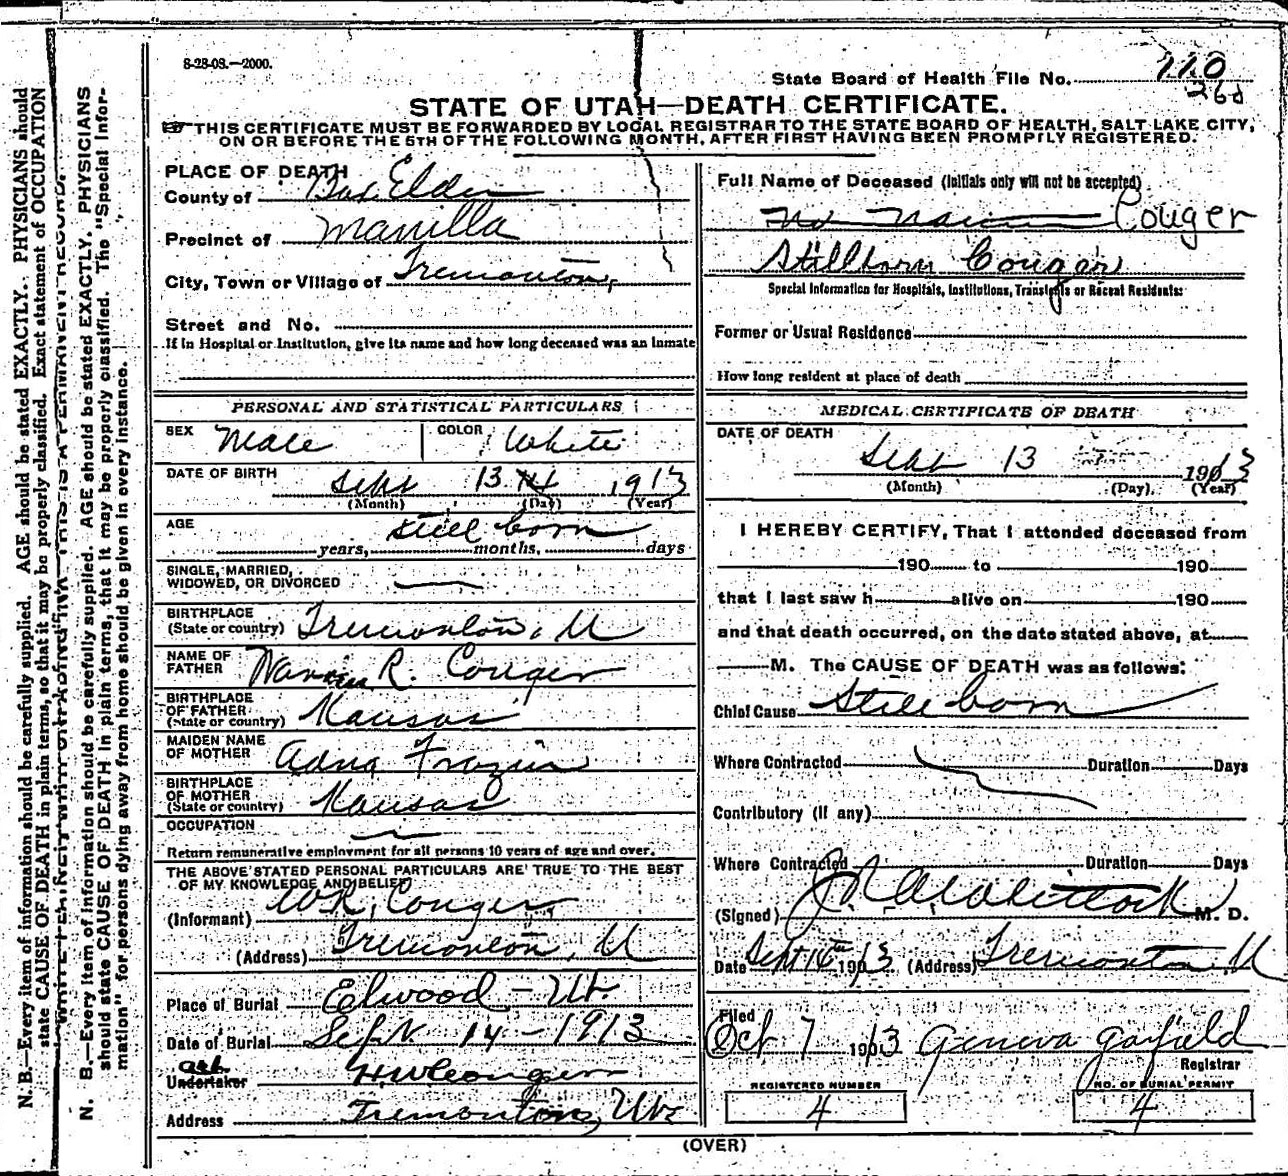 8-28-08.—2000.
State Board of Health File No. 110
260
STATE OF UTAH—DEATH CERTIFICATE.
THIS CERTIFICATE MUST BE FORWARDED BY LOCAL REGISTRAR TO THE STATE BOARD OF HEALTH, SALT LAKE CITY,
ON OR BEFORE THE 5TH OF THE FOLLOWING MONTH, AFTER FIRST HAVING BEEN PROMPTLY REGISTERED.
PLACE OF DEATH
County of Box Elder
Precinct of Manilla
City, Town or Village of Tremonton,
Street and No.
If in Hospital or Institution, give its name and how long deceased was an inmate
PERSONAL AND STATISTICAL PARTICULARS
SEX Male COLOR White
DATE OF BIRTH Sept 13 14 1913
(Month) (Day) (Year)
AGE still born
years, months, days
SINGLE, MARRIED,
WIDOWED, OR DIVORCED
BIRTHPLACE
(State or country) Tremonton, U
NAME OF
FATHER R. Couger
BIRTHPLACE
OF FATHER
(State or country) Kansas
MAIDEN NAME
OF MOTHER Adna Frazier
BIRTHPLACE
OF MOTHER
(State or country) Kansas
OCCUPATION
Return remunerative employment for all persons 10 years of age and over.
THE ABOVE STATED PERSONAL PARTICULARS ARE TRUE TO THE BEST
OF MY KNOWLEDGE AND BELIEF
(Informant) W R, Couger
(Address) Tremonton, U
Place of Burial Elwood - Ut.
Date of Burial Sept. 14 - 1913
Undertaker H W Couger
Address Tremonton, Ut
Full Name of Deceased (Initials only will not be accepted)
No Name Couger
Stillborn Couger
Special Information for Hospitals, Institutions, Transients or Recent Residents:
Former or Usual Residence
How long resident at place of death
MEDICAL CERTIFICATE OF DEATH
DATE OF DEATH
Sept 13 1913
(Month) (Day). (Year)
I HEREBY CERTIFY, That I attended deceased from
190 to 190
that I last saw h alive on 190
and that death occurred, on the date stated above, at
M. The CAUSE OF DEATH was as follows:
Chief Cause Still born
Where Contracted Duration Days
Contributory (if any)
Where Contracted Duration Days
(Signed) Whitlock M. D.
Date Sept 1913 (Address) Tremonton U
Filed
Oct 7 1903 Geneva Garfield
Registrar
REGISTERED NUMBER NO. OF BURIAL PERMIT
4 4
(OVER)
N. B.—Every item of information should be carefully supplied. AGE should be stated EXACTLY. PHYSICIANS should
state CAUSE OF DEATH in plain terms, so that it may be properly classified. Exact statement of OCCUPATION
N. B.—Every item of information should be carefully supplied. AGE should be stated EXACTLY. PHYSICIANS
should state CAUSE OF DEATH in plain terms, that it may be properly classified. The "Special Infor-
mation" for persons dying away from home should be given in every instance.